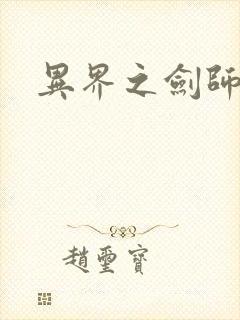 異界之劍師
趙璽寶